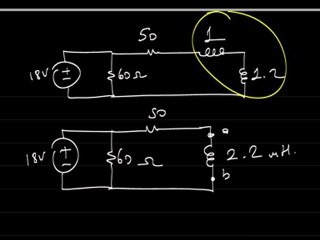 50
1
18V
60Ω
1.2
50
a
18V
60 Ω
2.2 mH.
b